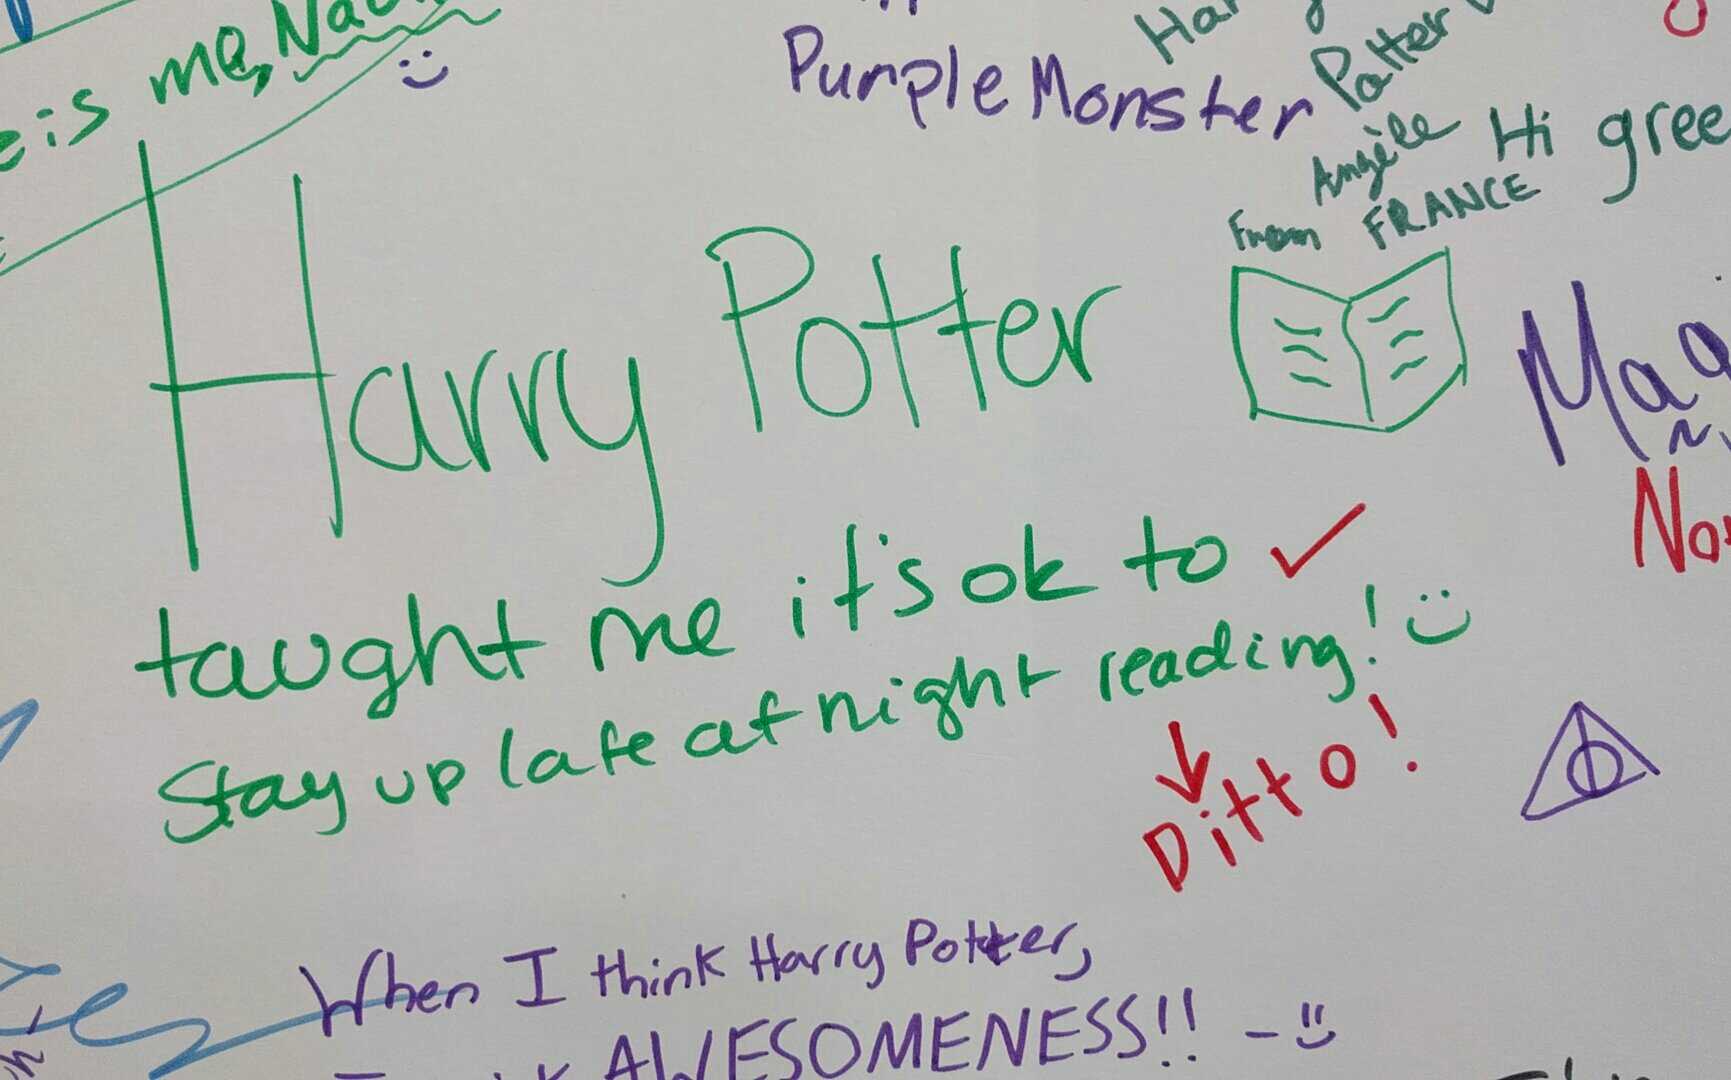 is me,
Purple Monster
Potter
Angèle
From FRANCE
Hi
Harry Potter
taught me it's ok to
stay up late at night reading!
Ditto!
When I think Harry Potter,
AWESOMENESS!!